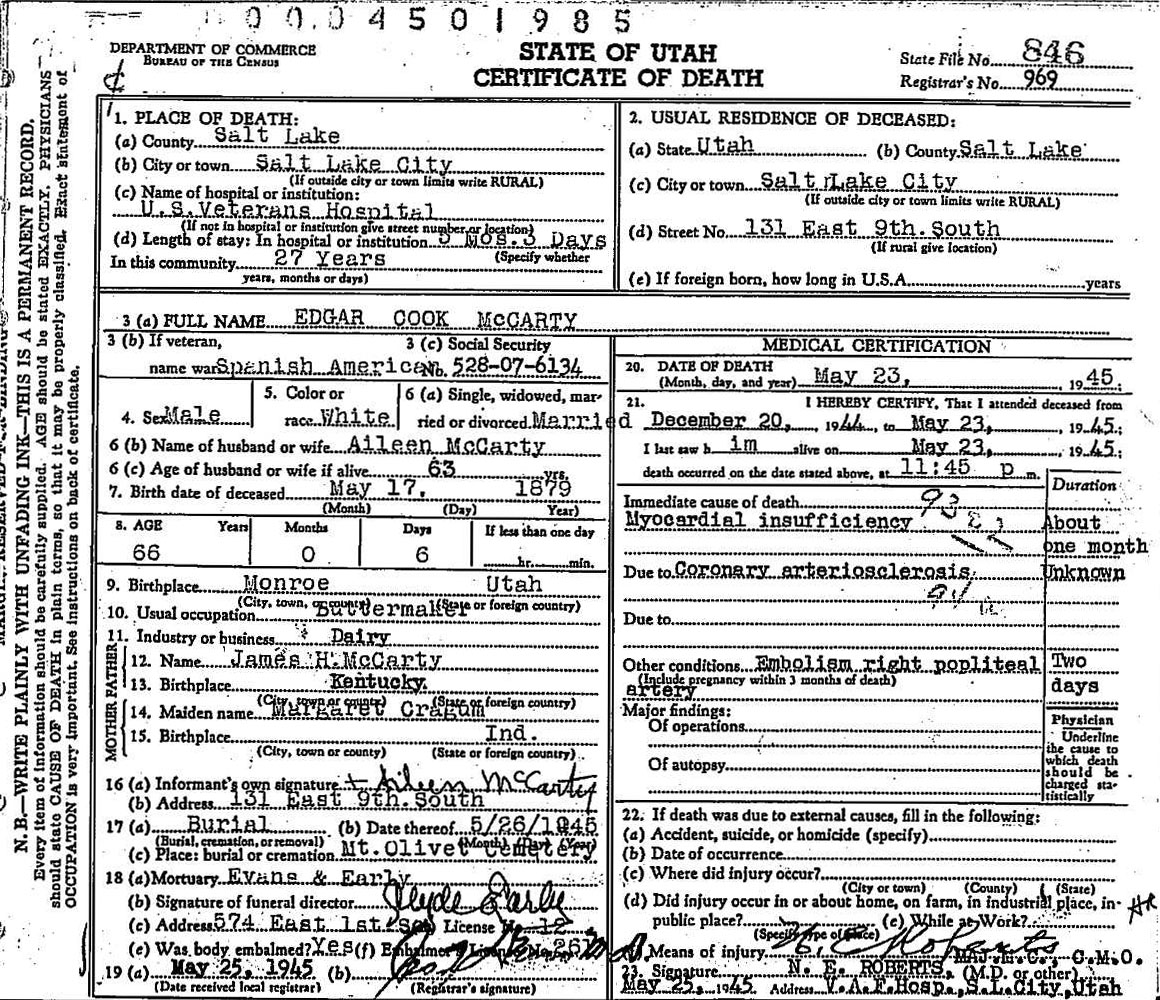 0 0.0 4 5 0 1 9 8 5
DEPARTMENT OF COMMERCE
BUREAU OF THE CENSUS
STATE OF UTAH
CERTIFICATE OF DEATH
State File No. 846
Registrar's No. 969
N. B.—WRITE PLAINLY WITH UNFADING INK—THIS IS A PERMANENT RECORD.
Every item of information should be carefully supplied. AGE should be stated EXACTLY. PHYSICIANS
should state CAUSE OF DEATH in plain terms, so that it may be properly classified. Exact statement of
OCCUPATION is very important. See instructions on back of certificate.
1. PLACE OF DEATH:
(a) County Salt Lake
(b) City or town Salt Lake City
(If outside city or town limits write RURAL)
(c) Name of hospital or institution:
U.S.Veterans Hospital
(If not in hospital or institution give street number or location)
(d) Length of stay: In hospital or institution Mos. Days
(Specify whether
In this community 27 Years
years, months or days)
2. USUAL RESIDENCE OF DECEASED:
(a) State Utah (b) County Salt Lake
(c) City or town Salt Lake City
(If outside city or town limits write RURAL)
(d) Street No. 131 East 9th.South
(If rural give location)
(e) If foreign born, how long in U.S.A. years
3 (a) FULL NAME EDGAR COOK McCARTY
3 (b) If veteran, 3 (c) Social Security
name war Spanish American No. 528-07-6134
4. Sex Male
5. Color or
race White
6 (a) Single, widowed, mar-
ried or divorced Married
6 (b) Name of husband or wife Aileen McCarty
6 (c) Age of husband or wife if alive 63 yrs.
7. Birth date of deceased May 17, 1879
(Month) (Day) Year)
8. AGE Years Months Days If less than one day
66 0 6 hr. min.
9. Birthplace Monroe Utah
(City, town, or county) (State or foreign country)
10. Usual occupation Buttermaker
11. Industry or business Dairy
FATHER
12. Name James H.McCarty
13. Birthplace Kentucky.
(City, town or county) (State or foreign country)
MOTHER
14. Maiden name Margaret Cragum
15. Birthplace Ind.
(City, town or county) (State or foreign country)
16 (a) Informant's own signature Aileen McCarty
(b) Address 131 East 9th.South
17 (a) Burial (b) Date thereof 5/26/1945
(Burial, cremation, or removal) (Month) (Day) (Year)
(c) Place: burial or cremation Mt.Olivet Cemetery
18 (a) Mortuary Evans & Early
(b) Signature of funeral director Clyde Early
(c) Address 574 East 1st.So. License No. 12
(e) Was body embalmed? Yes (f) Embalmer's License No. 261
19 (a) May 25, 1945 (b)
(Date received local registrar) (Registrar's signature)
MEDICAL CERTIFICATION
20. DATE OF DEATH
(Month, day, and year) May 23, , 1945.
21. I HEREBY CERTIFY, That I attended deceased from
December 20, , 1944, to May 23, , 1945.;
I last saw h im alive on May 23, , 1945.;
death occurred on the date stated above, at 11:45 p m.
Duration
Immediate cause of death 93
Myocardial insufficiency About
one month
Due to Coronary arteriosclerosis Unknown
94 a
Due to
Other conditions Embolism right popliteal Two
(Include pregnancy within 3 months of death)
artery days
Major findings:
Of operations
Of autopsy
Physician
Underline
the cause to
which death
should be
charged sta-
tistically
22. If death was due to external causes, fill in the following:
(a) Accident, suicide, or homicide (specify)
(b) Date of occurrence
(c) Where did injury occur?
(City or town) (County) (State)
(d) Did injury occur in or about home, on farm, in industrial place, in-
public place? (e) While at Work?
(Specify type of place)
Means of injury N. E. Roberts
N. E. ROBERTS, MAJ.M.C., C.M.O.
23. Signature (M.D. or other)
May 25, 1945 Address V.A.F.Hosp.,S.L.City,Utah